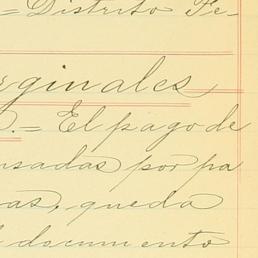 = Distrito Fe-
rginales
).= El pago de
nsadas por pa
as, queda
l documento